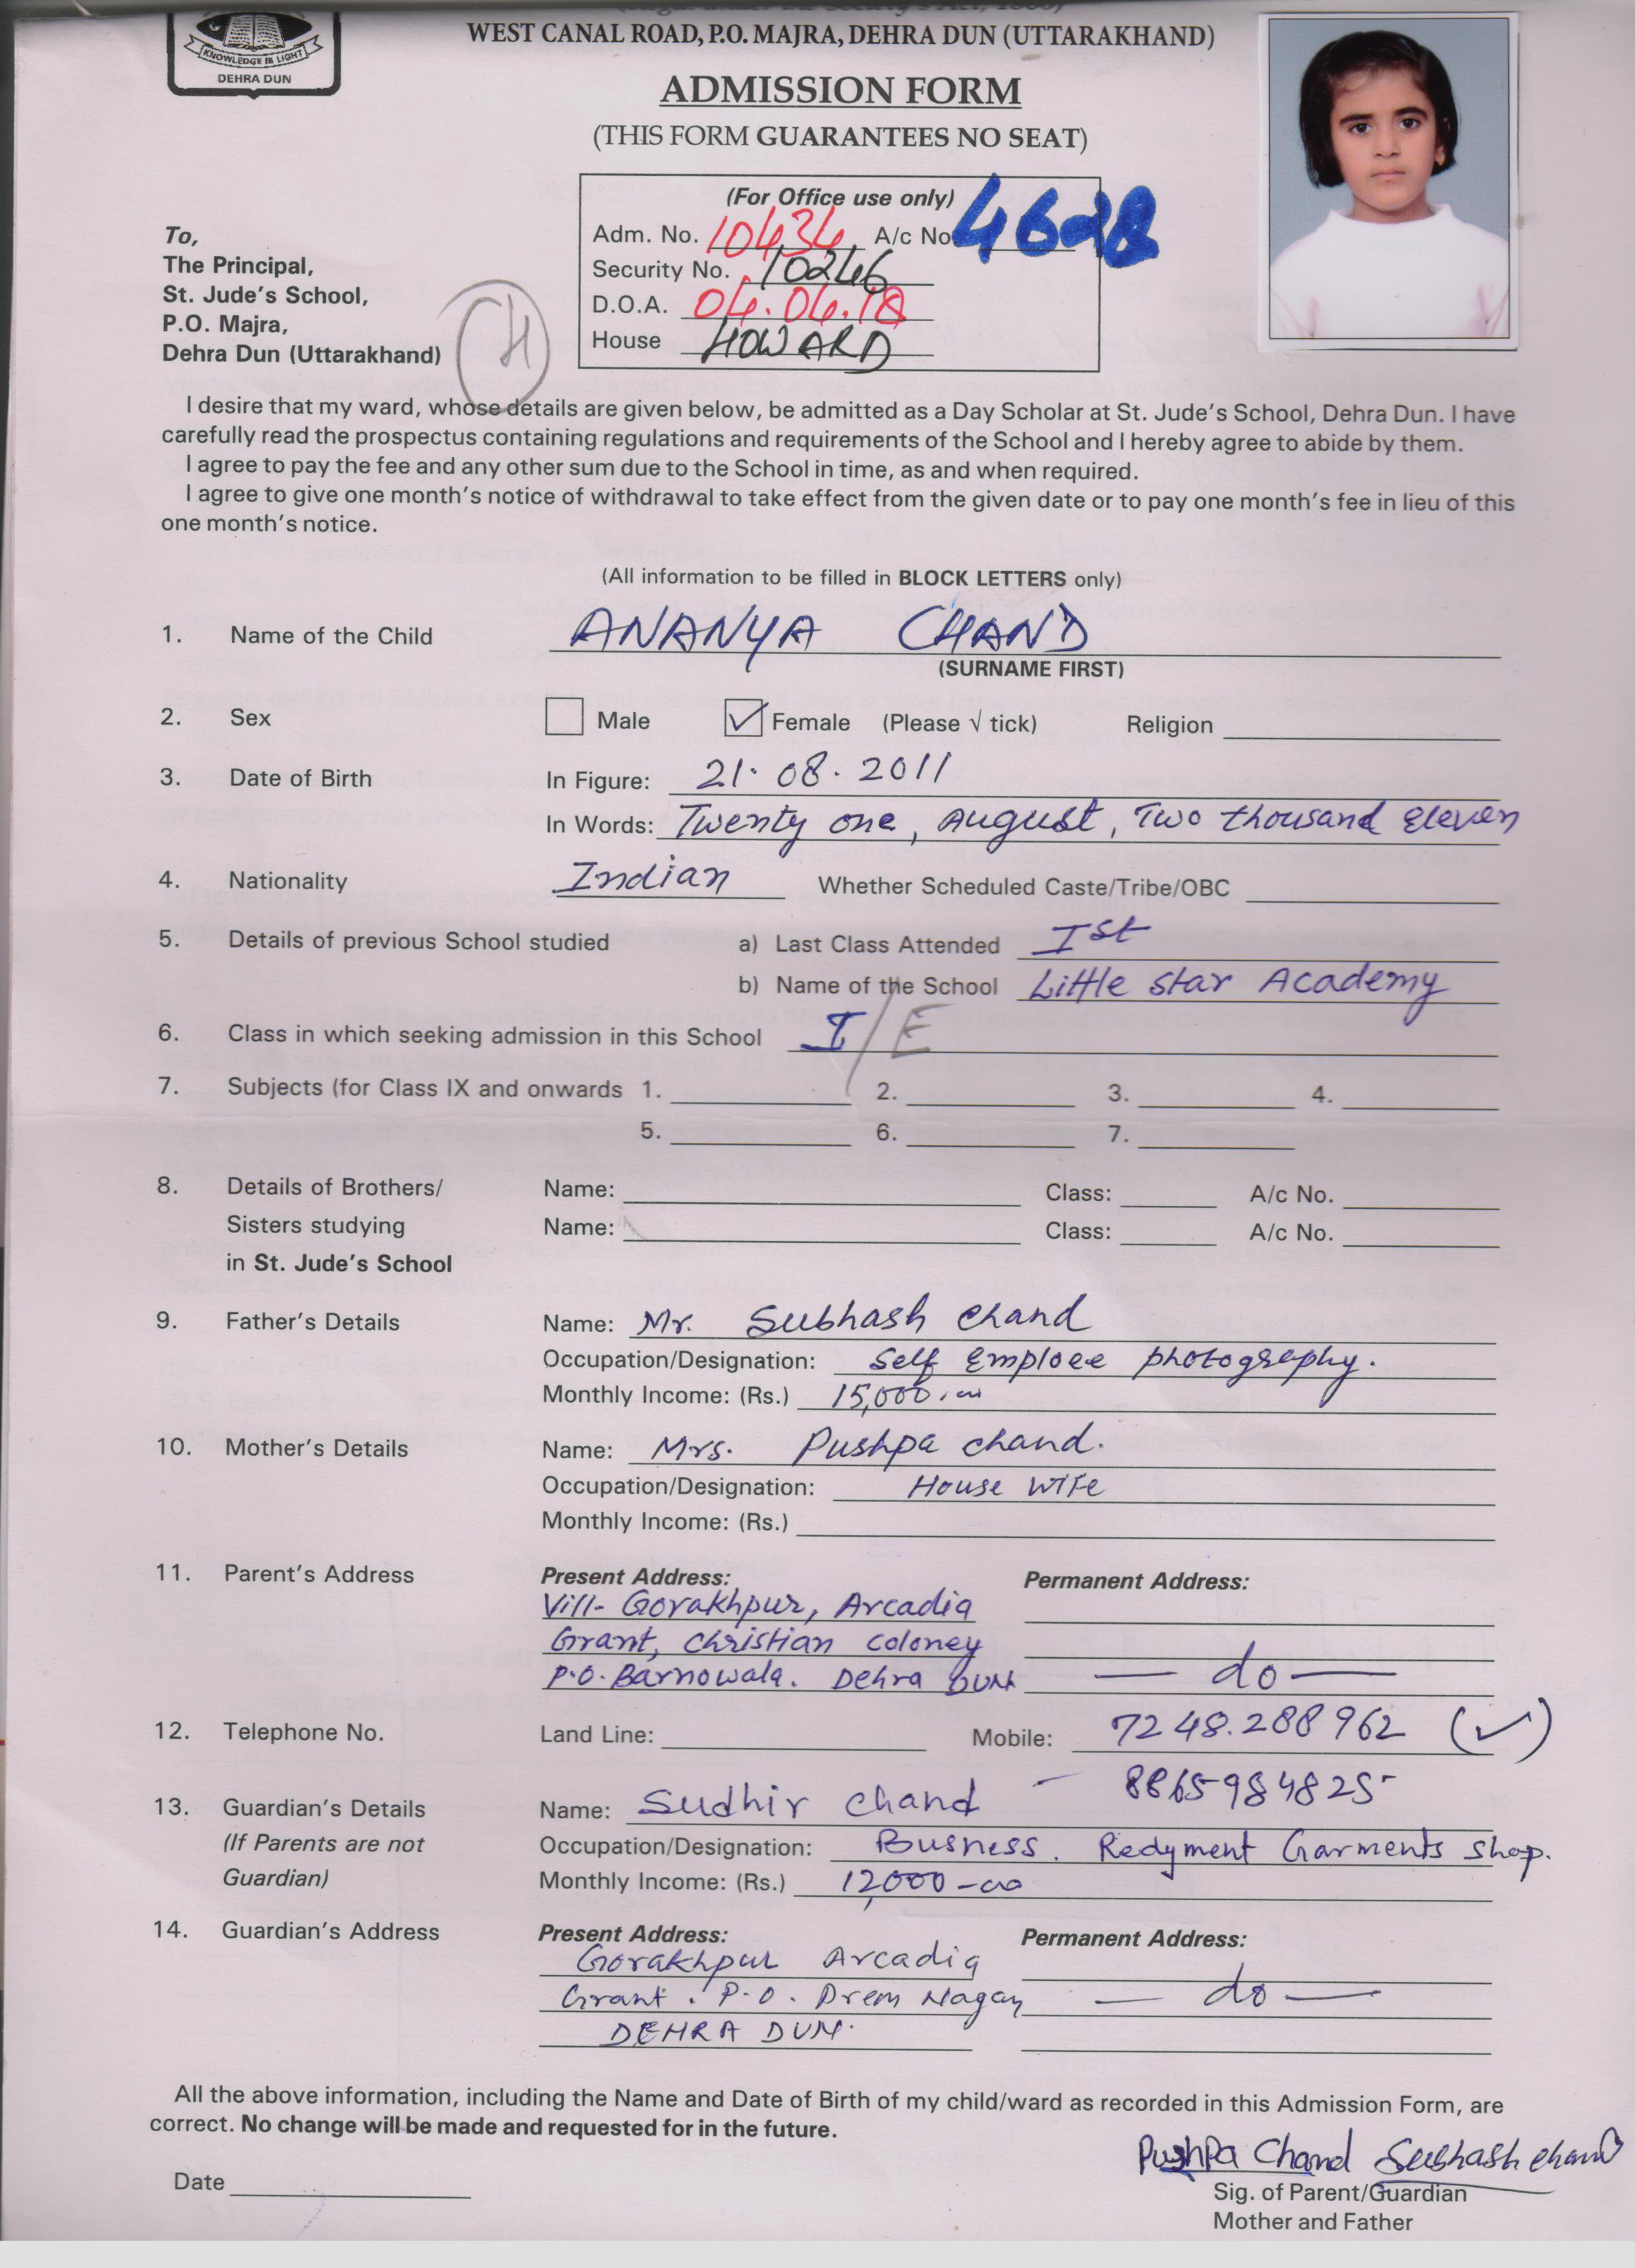 KNOWLEDGE IS LIGHT
DEHRA DUN
WEST CANAL ROAD, P.O. MAJRA, DEHRA DUN (UTTARAKHAND)
ADMISSION FORM
(THIS FORM GUARANTEES NO SEAT)
(For Office use only)
Adm. No. 10434 A/c No
Security No. 10246
D.O.A. 04.04.18
House HOWARD
To,
The Principal,
St. Jude's School,
P.O. Majra,
Dehra Dun (Uttarakhand)
H
I desire that my ward, whose details are given below, be admitted as a Day Scholar at St. Jude's School, Dehra Dun. I have
carefully read the prospectus containing regulations and requirements of the School and I hereby agree to abide by them.
I agree to pay the fee and any other sum due to the School in time, as and when required.
I agree to give one month's notice of withdrawal to take effect from the given date or to pay one month's fee in lieu of this
one month's notice.
(All information to be filled in BLOCK LETTERS only)
1. Name of the Child ANANYA CHAND
(SURNAME FIRST)
2. Sex Male ✓ Female (Please √ tick) Religion
3. Date of Birth In Figure: 21.08.2011
In Words: Twenty one, August, Two thousand Eleven
4. Nationality Indian Whether Scheduled Caste/Tribe/OBC
5. Details of previous School studied a) Last Class Attended Ist
b) Name of the School Little star Academy
6. Class in which seeking admission in this School I/E
7. Subjects (for Class IX and onwards 1. 2. 3. 4.
5. 6. 7.
8. Details of Brothers/ Name: Class: A/c No.
Sisters studying Name: Class: A/c No.
in St. Jude's School
9. Father's Details Name: Mr. Subhash chand
Occupation/Designation: Self Emploee photography.
Monthly Income: (Rs.) 15,000.00
10. Mother's Details Name: Mrs. Pushpa chand.
Occupation/Designation: House wife
Monthly Income: (Rs.)
11. Parent's Address Present Address: Permanent Address:
Vill- Gorakhpur, Arcadia
Grant, christian coloney
P.O. Barnowala. Dehra DUN — do —
12. Telephone No. Land Line: Mobile: 7248.288962 (✓)
8865984825
13. Guardian's Details Name: Sudhir chand
(If Parents are not Occupation/Designation: Busness. Redyment Garments shop.
Guardian) Monthly Income: (Rs.) 12,000-00
14. Guardian's Address Present Address: Permanent Address:
Gorakhpur Arcadia
Grant. P.O. Prem Nagar — do —
DEHRA DUN.
All the above information, including the Name and Date of Birth of my child/ward as recorded in this Admission Form, are
correct. No change will be made and requested for in the future.
Pushpa Chand Subhash chand
Date
Sig. of Parent/Guardian
Mother and Father